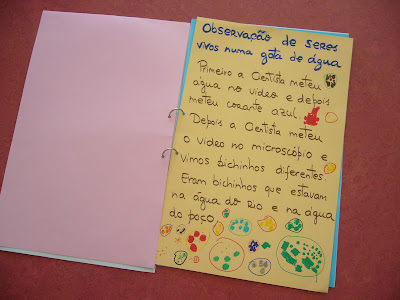 Observação de seres
vivos numa gota de água
Primeiro a Cientista meteu
água no vidro e depois
meteu corante azul
Depois a Cientista meteu
o vidro no microscópio e
vimos bichinhos diferentes.
Eram bichinhos que estavam
na água do Rio e na água
do poço